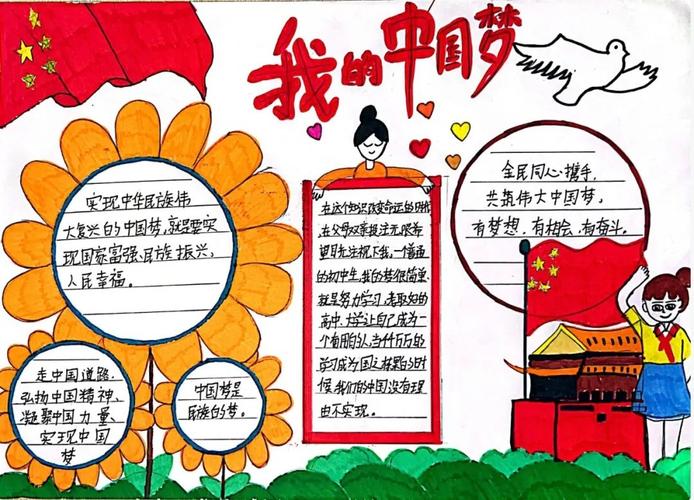 我的中国梦
实现中华民族伟
大复兴的中国梦,就是要实
现国家富强、民族振兴、
人民幸福。
走中国道路,
弘扬中国精神、
凝聚中国力量、
实现中国
梦
中国梦是
民族的梦。
在这个知识改变命运的时代
在父母双亲投注无限希
望目光注视下我,一个普通
的初中生,我的梦很简单,
就是努力学习,考取好的
高中,大学让自己成为一
个有用的人,当千千万万的
学习成为国之栋梁的时
候,我们的中国没有理
由不实现。
全民同心携手,
共筑伟大中国梦,
有梦想,有机会,有奋斗。